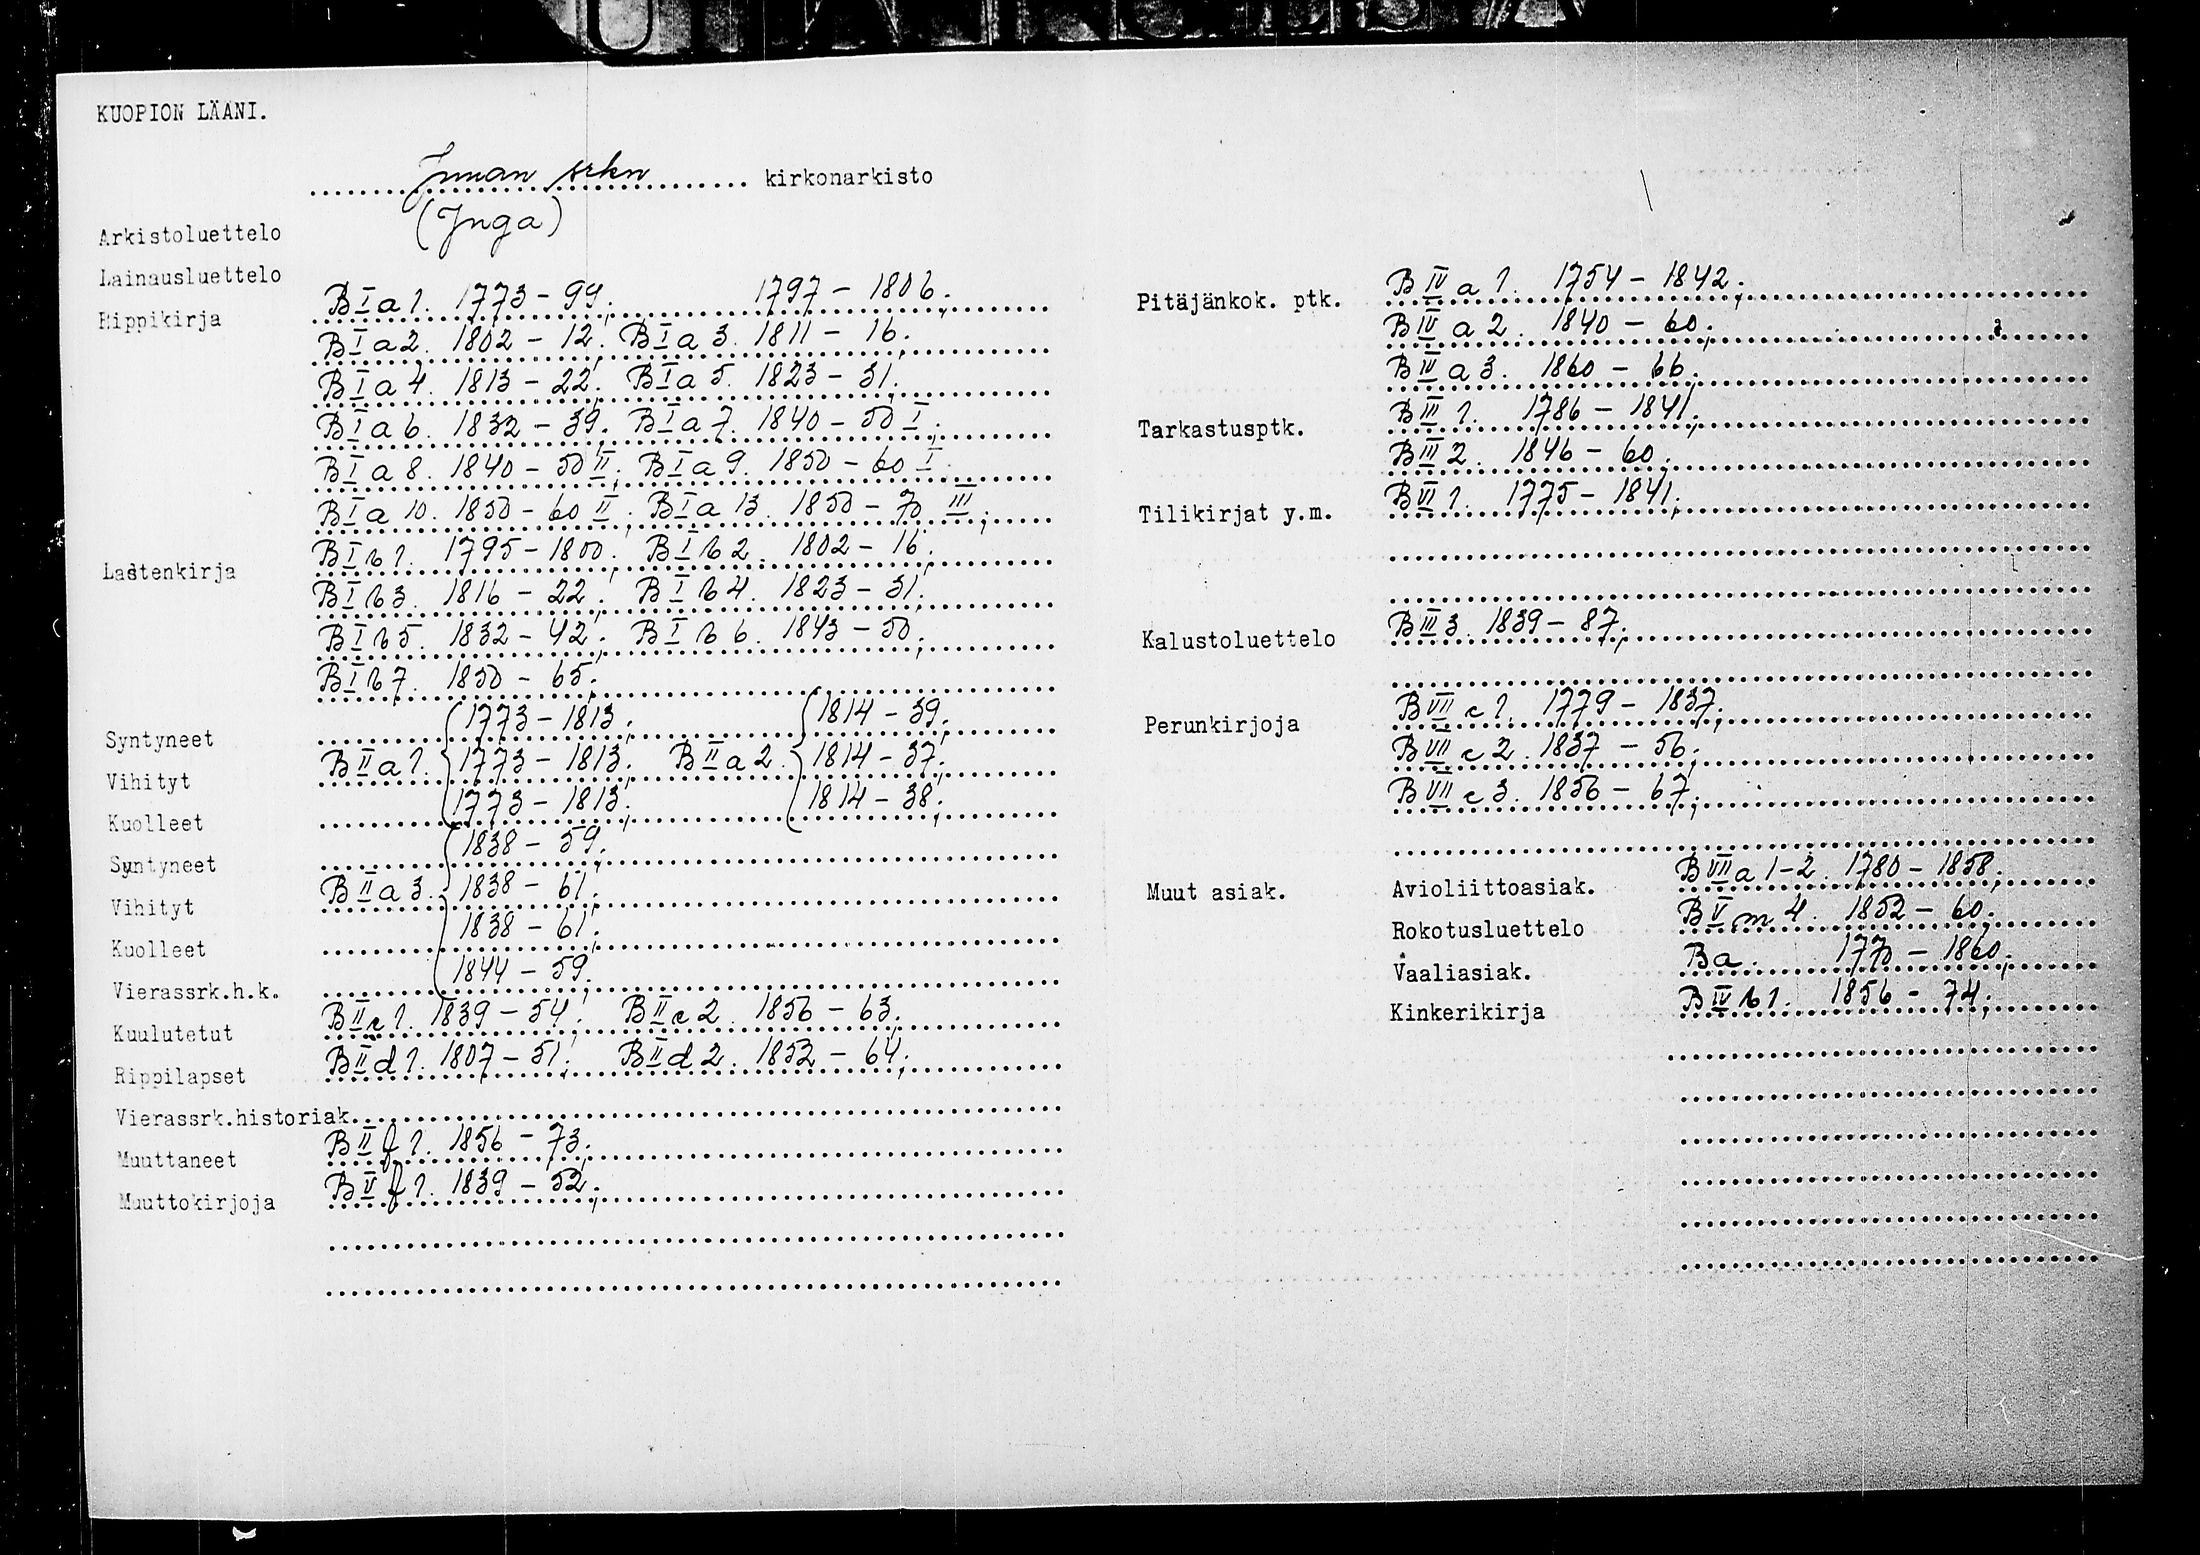 KUOPION LÄÄNI.
Junan srkn kirkonarkisto
(Juga)
Arkistoluettelo
Lainausluettelo
Rippikirja B I a 1. 1773 - 99; 1797 - 1806;
B I a 2. 1802 - 12; B I a 3. 1811 - 16;
B I a 4. 1813 - 22; B I a 5. 1823 - 31;
B I a 6. 1832 - 39. B I a 7. 1840 - 50 I;
B I a 8. 1840 - 50 II; B I a 9. 1850 - 60 I
B I a 10. 1850 - 60 II; B I a 13. 1850 - 70 III;
Lastenkirja B I b 1. 1795 - 1800; B I b 2. 1802 - 16;
B I b 3. 1816 - 22; B I b 4. 1823 - 31;
B I b 5. 1832 - 42; B I b 6. 1843 - 50;
B I b 7. 1850 - 65;
Syntyneet 1773 - 1813; 1814 - 39;
Vihityt B II a 1. 1773 - 1813; B II a 2. 1814 - 37;
Kuolleet 1773 - 1813; 1814 - 38;
Syntyneet 1838 - 59;
Vihityt B II a 3. 1838 - 61;
Kuolleet 1838 - 61;
Vierassrk.h.k. 1844 - 59;
Kuulutetut B II c 1. 1839 - 54; B II c 2. 1856 - 63;
Rippilapset B II d 1. 1807 - 51; B II d 2. 1852 - 64;
Vierassrk.historiak.
Muuttaneet B II f 1. 1856 - 73;
Muuttokirjoja B V f 1. 1839 - 52;
Pitäjänkok. ptk. B IV a 1. 1754 - 1842;
B IV a 2. 1840 - 60;
B IV a 3. 1860 - 66;
Tarkastusptk. B III 1. 1786 - 1841;
B III 2. 1846 - 60;
Tilikirjat y.m. B VI 1. 1775 - 1841;
Kalustoluettelo B III 3. 1839 - 87;
Perunkirjoja B VII c 1. 1779 - 1837;
B VII c 2. 1837 - 56;
B VII c 3. 1856 - 67;
Muut asiak. Avioliittoasiak. B VII a 1-2. 1780 - 1858;
Rokotusluettelo B V m 4. 1852 - 60;
Vaaliasiak. Ba. 1770 - 1860;
Kinkerikirja B IV b 1. 1856 - 74;